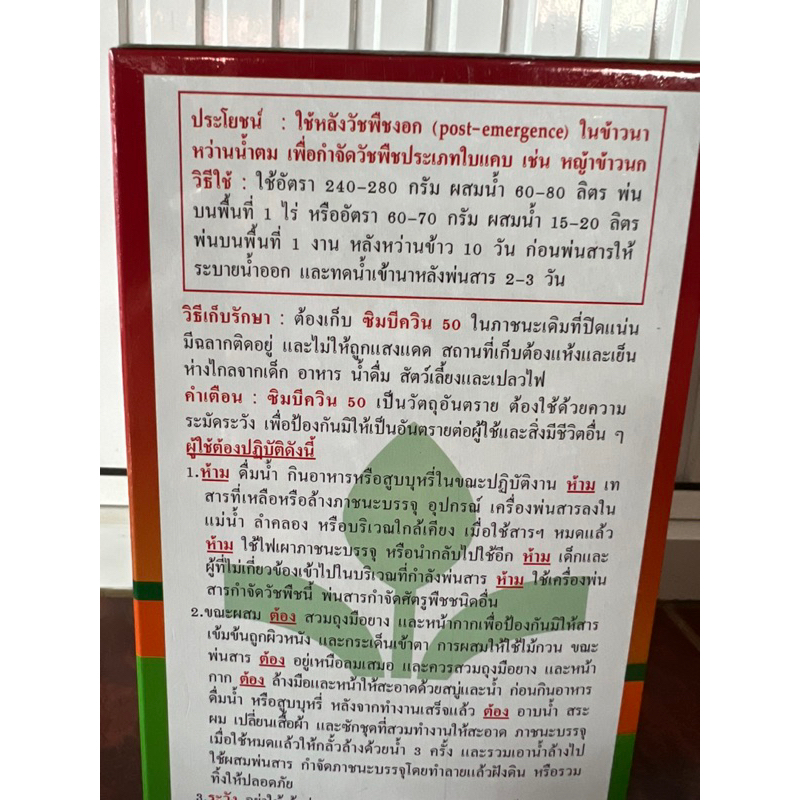 ประโยชน์ : ใช้หลังวัชพืชงอก (post-emergence) ในข้าวนา
หว่านน้ำตม เพื่อกำจัดวัชพืชประเภทใบแคบ เช่น หญ้าข้าวนก
วิธีใช้ : ใช้อัตรา 240-280 กรัม ผสมน้ำ 60-80 ลิตร พ่น
บนพื้นที่ 1 ไร่ หรืออัตรา 60-70 กรัม ผสมน้ำ 15-20 ลิตร
พ่นบนพื้นที่ 1 งาน หลังหว่านข้าว 10 วัน ก่อนพ่นสารให้
ระบายน้ำออก และทดน้ำเข้านาหลังพ่นสาร 2-3 วัน
วิธีเก็บรักษา : ต้องเก็บ ซิมบีควิน 50 ในภาชนะเดิมที่ปิดแน่น
มีฉลากติดอยู่ และไม่ให้ถูกแสงแดด สถานที่เก็บต้องแห้งและเย็น
ห่างไกลจากเด็ก อาหาร น้ำดื่ม สัตว์เลี้ยงและเปลวไฟ
คำเตือน : ซิมบีควิน 50 เป็นวัตถุอันตราย ต้องใช้ด้วยความ
ระมัดระวัง เพื่อป้องกันมิให้เป็นอันตรายต่อผู้ใช้และสิ่งมีชีวิตอื่น ๆ
ผู้ใช้ต้องปฏิบัติดังนี้
1.ห้าม ดื่มน้ำ กินอาหารหรือสูบบุหรี่ในขณะปฏิบัติงาน ห้าม เท
สารที่เหลือหรือล้างภาชนะบรรจุ อุปกรณ์ เครื่องพ่นสารลงใน
แม่น้ำ ลำคลอง หรือบริเวณใกล้เคียง เมื่อใช้สารฯ หมดแล้ว
ห้าม ใช้ไฟเผาภาชนะบรรจุ หรือนำกลับไปใช้อีก ห้าม เด็กและ
ผู้ที่ไม่เกี่ยวข้องเข้าไปในบริเวณที่กำลังพ่นสาร ห้าม ใช้เครื่องพ่น
สารกำจัดวัชพืชนี้ พ่นสารกำจัดศัตรูพืชชนิดอื่น
2.ขณะผสม ต้อง สวมถุงมือยาง และหน้ากากเพื่อป้องกันมิให้สาร
เข้มข้นถูกผิวหนัง และกระเด็นเข้าตา การผสมให้ใช้ไม้กวน ขณะ
พ่นสาร ต้อง อยู่เหนือลมเสมอ และควรสวมถุงมือยาง และหน้า
กาก ต้อง ล้างมือและหน้าให้สะอาดด้วยสบู่และน้ำ ก่อนกินอาหาร
ดื่มน้ำ หรือสูบบุหรี่ หลังจากทำงานเสร็จแล้ว ต้อง อาบน้ำ สระ
ผม เปลี่ยนเสื้อผ้า และซักชุดที่สวมทำงานให้สะอาด ภาชนะบรรจุ
เมื่อใช้หมดแล้วให้กลั้วล้างด้วยน้ำ 3 ครั้ง และรวมเอาน้ำล้างไป
ใช้ผสมพ่นสาร กำจัดภาชนะบรรจุโดยทำลายแล้วฝังดิน หรือรวม
ทิ้งให้ปลอดภัย
3.ระวัง